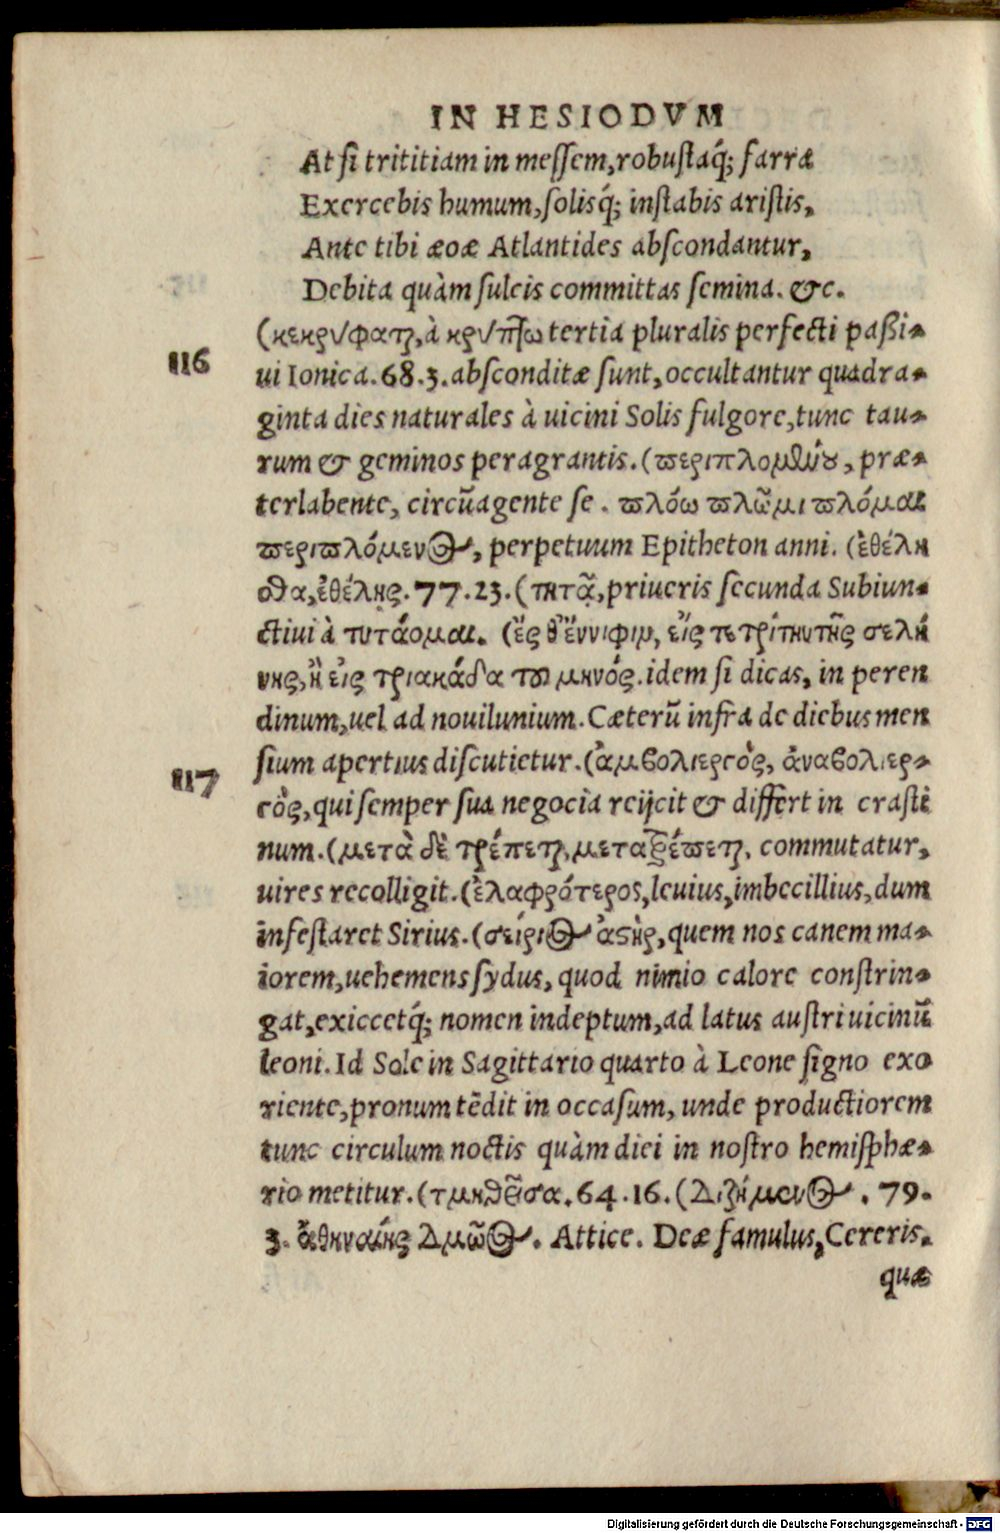 IN HESIODVM
At si trititiam in messem, robustaq́; farra
Exercebis humum, solisq́; instabis aristis,
Ante tibi æoæ Atlantides abscondantur,
Debita quàm sulcis committas semina. &c.
(κεκρύφαται, à κρύπτω tertia pluralis perfecti paßi-
116
ui Ionica. 68. 3. absconditæ sunt, occultantur quadra-
ginta dies naturales à uicini Solis fulgore, tunc tau-
rum & geminos peragrantis. (περιπλομένου, præ-
terlabente, circũagente se. πλόω πλῶμι πλόμαι
περιπλόμενος, perpetuum Epitheton anni. (ἐθέλη
σθα, ἐθέλης. 77. 23. (πητᾷ, priueris secunda Subiun-
ctiui à πητάομαι. (ἔς θ' ἔννιφιν, εἰς τὴν τρίτην τῆς σελή
νης, ἢ εἰς τριακάδα τοῦ μηνός. idem si dicas, in peren
dinum, uel ad nouilunium. Cæterũ infra de diebus men
sium apertius discutietur. (ἀμβολιεργὸς, ἀναβολιερ-
117
γὸς, qui semper sua negocia reijcit & differt in crasti
num. (μετὰ δὲ τρέπεται, μετατρέπεται, commutatur,
uires recolligit. (ἐλαφρότερος, leuius, imbecillius, dum
infestaret Sirius. (σείριος ἀστὴρ, quem nos canem ma-
iorem, uehemens sydus, quod nimio calore constrin-
gat, exiccetq́; nomen indeptum, ad latus austri uicinũ
leoni. Id Sole in Sagittario quarto à Leone signo exo
riente, pronum tẽdit in occasum, unde productiorem
tunc circulum noctis quàm diei in nostro hemisphæ-
rio metitur. (τμηθεῖσα. 64. 16. (Διζήμενος. 79.
3. ἀθηναίης Δμῶος. Attice. Deæ famulus, Cereris,
quæ
Digitalisierung gefördert durch die Deutsche Forschungsgemeinschaft - DFG